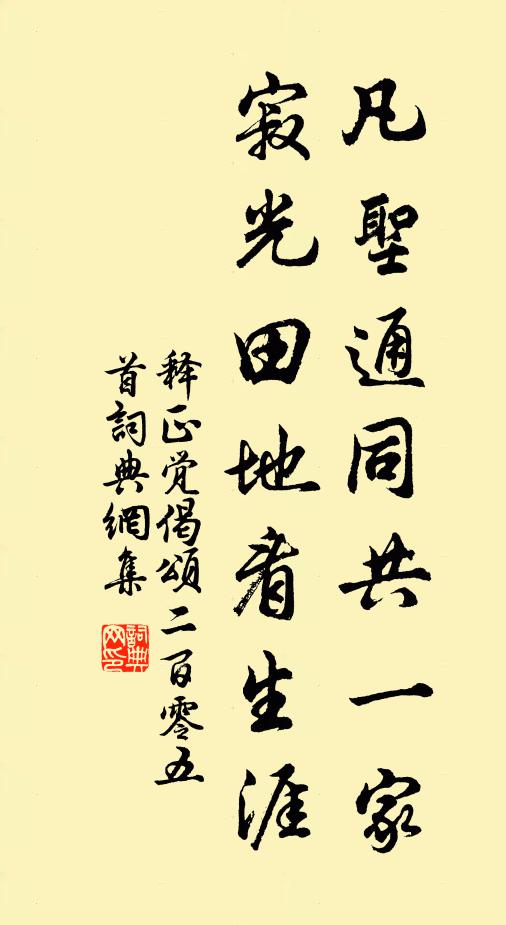 凡聖通同共一家
寂光田地看生涯
释正觉偈頌二百零五
首詞典網集
詞典網印